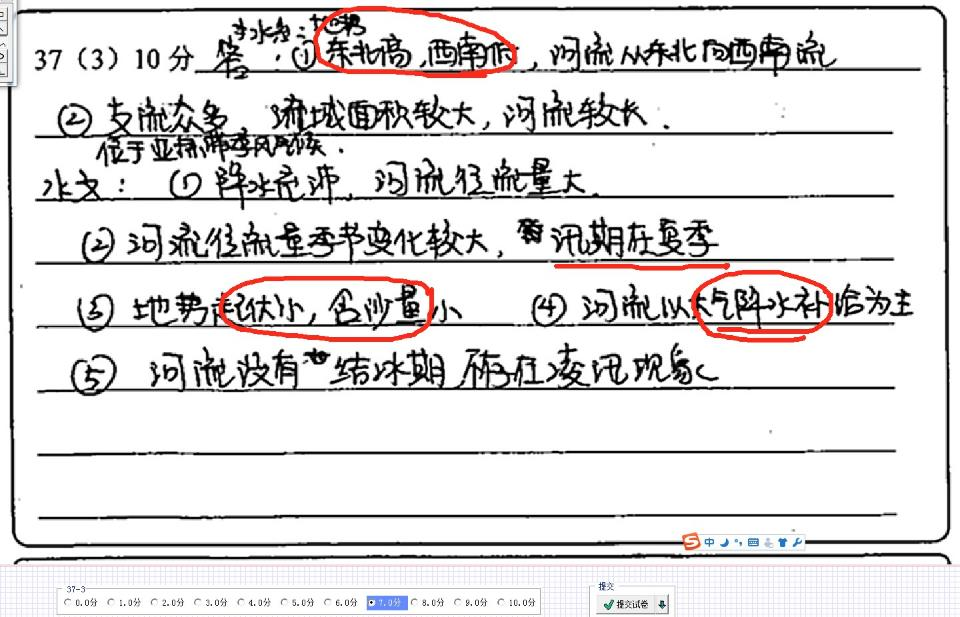 水系：地势
37（3）10分 答：①东北高，西南低，河流从东北向西南流
②支流众多，流域面积较大，河流较长．
位于亚热带季风气候．
水文：①降水充沛，河流径流量大．
②河流径流量季节变化较大，汛期在夏季
③地势起伏小，含沙量小 ④河流以大气降水补给为主
⑤河流没有结冰期 不存在凌汛现象
中
37-3
0.0分 1.0分 2.0分 3.0分 4.0分 5.0分 6.0分 7.0分 8.0分 9.0分 10.0分
提交
提交试卷